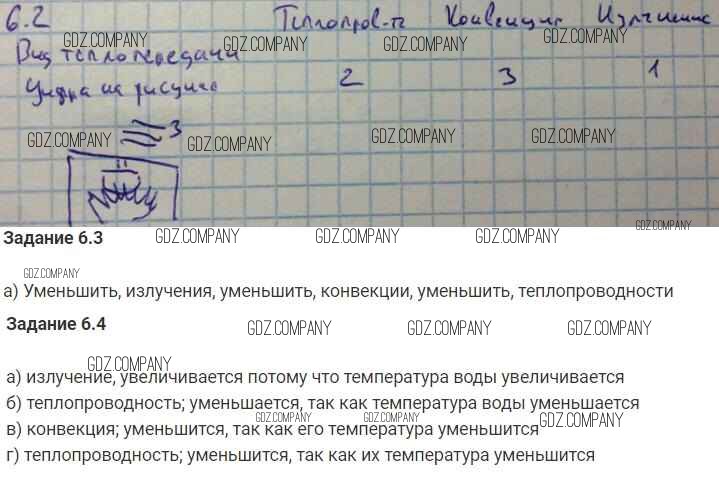 6.2 Теплопров-ть Конвекция Излучение
GDZ.COMPANY GDZ.COMPANY GDZ.COMPANY GDZ.COMPANY
Вид теплопередачи
Цифра на рисунке 2 3 1
3
GDZ.COMPANY GDZ.COMPANY GDZ.COMPANY GDZ.COMPANY
GDZ.COMPANY
Задание 6.3 GDZ.COMPANY GDZ.COMPANY GDZ.COMPANY
GDZ.COMPANY
а) Уменьшить, излучения, уменьшить, конвекции, уменьшить, теплопроводности
Задание 6.4 GDZ.COMPANY GDZ.COMPANY GDZ.COMPANY
GDZ.COMPANY
а) излучение, увеличивается потому что температура воды увеличивается
б) теплопроводность; уменьшается, так как температура воды уменьшается
GDZ.COMPANY GDZ.COMPANY GDZ.COMPANY
в) конвекция; уменьшится, так как его температура уменьшится
г) теплопроводность; уменьшится, так как их температура уменьшится